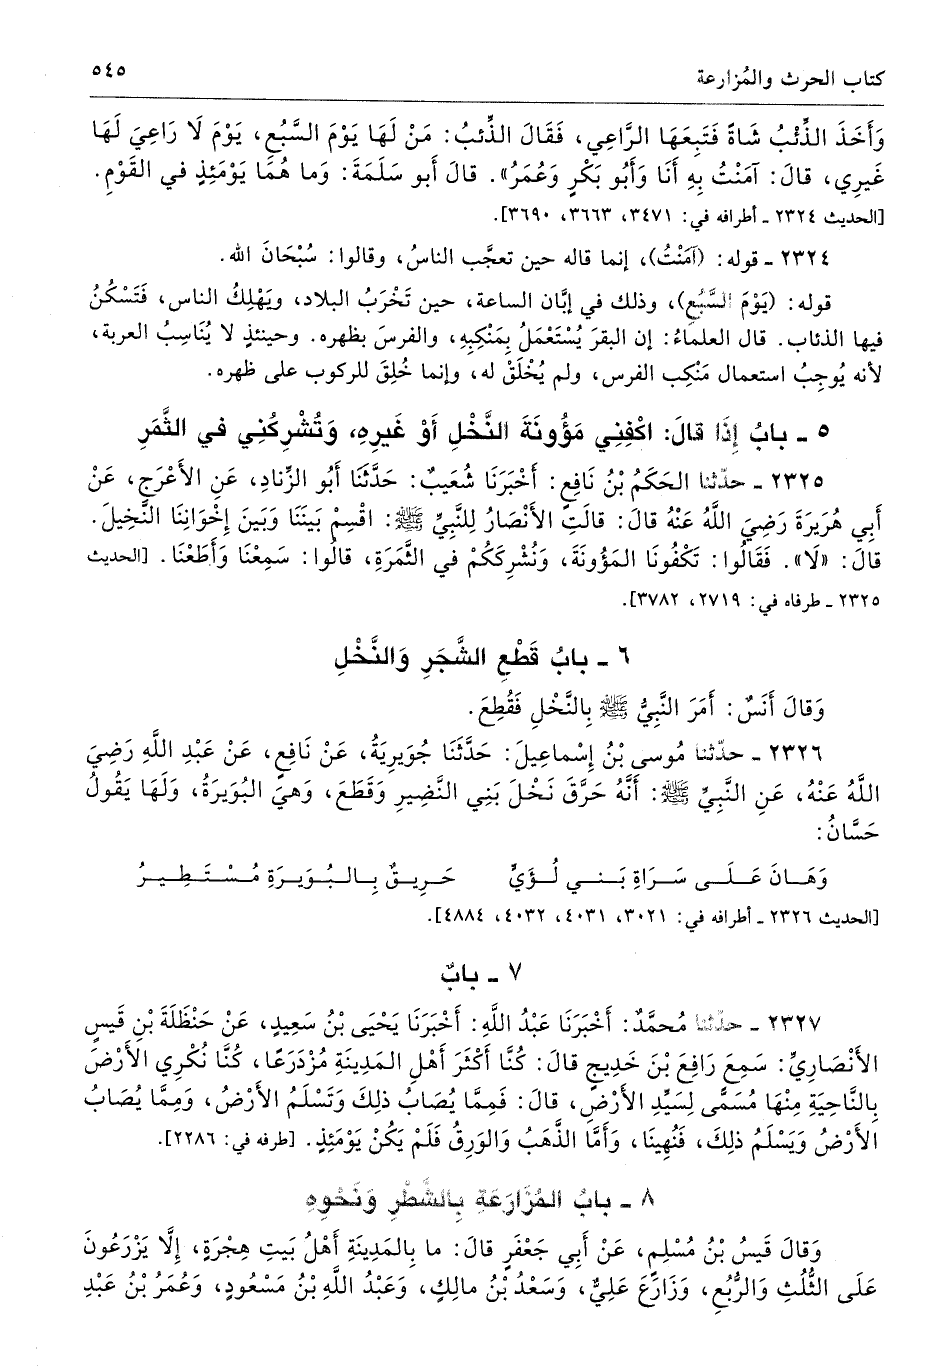 كتاب الحرث والمُزارعة
٥٤٥
وَأَخَذَ الذِّئْبُ شَاةً فَتَبِعَهَا الرَّاعِي، فَقَالَ الذِّئبُ: مَنْ لَهَا يَوْمَ السَّبُعِ، يَوْمَ لَا رَاعِيَ لَهَا
غَيرِي، قالَ: آمَنْتُ بِهِ أَنَا وَأَبُو بَكْرٍ وَعُمَرُ». قالَ أَبو سَلَمَةَ: وَما هُمَا يَوْمَئِذٍ في القَوْمِ.
[الحديث ٢٣٢٤ ـ أطرافه في: ٣٤٧١، ٣٦٦٣، ٣٦٩٠].
٢٣٢٤ ـ قوله: (آمَنْتُ)، إنما قاله حين تعجَّب الناسُ، وقالوا: سُبْحَانَ الله.
قوله: (يَوْمَ السَّبُعِ)، وذلك في إبَّان الساعة، حين تَخْرَبُ البلاد، ويَهْلِكُ الناس، فَتَسْكُنُ
فيها الذئاب. قال العلماءُ: إن البقرَ يُسْتَعْمَلُ بِمَنْكِبِهِ، والفرسَ بظهره. وحينئذٍ لا يُنَاسِبُ العربة،
لأنه يُوجِبُ استعمال مَنْكِب الفرس، ولم يُخْلَقْ له، وإنما خُلِقَ للركوب على ظهره.
٥ ـ بابُ إِذَا قالَ: اكْفِنِي مَؤُونَةَ النَّخْلِ أَوْ غَيرِهِ، وَتُشْرِكُنِي في الثَّمَرِ
٢٣٢٥ ـ حدّثنا الحَكَمُ بْنُ نَافِعٍ: أَخْبَرَنَا شُعَيبٌ: حَدَّثَنَا أَبُو الزِّناد، عَنِ الأَعْرَجِ، عَنْ
أَبِي هُرَيرَةَ رَضِيَ اللَّهُ عَنْهُ قالَ: قالَتِ الأَنْصَارُ لِلنَّبِيِّ ﷺ: اقْسِمْ بَينَنَا وَبَينَ إِخْوَانِنَا النَّخِيلَ.
قالَ: «لَا». فَقَالُوا: تَكْفُونَا المَؤُونَةَ، وَنُشْرِكُكُمْ في الثَّمَرَةِ، قالُوا: سَمِعْنَا وَأَطَعْنَا. [الحديث
٢٣٢٥ ـ طرفاه في: ٢٧١٩، ٣٧٨٢].
٦ ـ بابُ قَطْعِ الشَّجَرِ وَالنَّخْلِ
وَقالَ أَنَسٌ: أَمَرَ النَّبِيُّ ﷺ بِالنَّخْلِ فَقُطِعَ.
٢٣٢٦ ـ حدّثنا مُوسى بْنُ إِسْماعِيلَ: حَدَّثَنَا جُوَيرِيَةُ، عَنْ نَافِعٍ، عَنْ عَبْدِ اللَّهِ رَضِيَ
اللَّهُ عَنْهُ، عَنِ النَّبِيِّ ﷺ: أَنَّهُ حَرَّقَ نَخْلَ بَنِي النَّضِيرِ وَقَطَعَ، وَهيَ البُوَيرَةُ، وَلَهَا يَقُولُ
حَسَّانُ:
وَهَانَ عَلَى سَرَاةِ بَنِي لُؤَيٍّ حَرِيقٌ بِالبُوَيرَةِ مُسْتَطِيرُ
[الحديث ٢٣٢٦ ـ أطرافه في: ٣٠٢١، ٤٠٣١، ٤٠٣٢، ٤٨٨٤].
٧ ـ بابٌ
٢٣٢٧ ـ حدّثنا مُحمَّدٌ: أَخْبَرَنَا عَبْدُ اللَّهِ: أَخْبَرَنَا يَحْيَى بْنُ سَعِيدٍ، عَنْ حَنْظَلَةَ بْنِ قَيسٍ
الأَنْصَارِيِّ: سَمِعَ رَافِعَ بْنَ خَدِيجٍ قالَ: كُنَّا أَكْثَرَ أَهْلِ المَدِينَةِ مُزْدَرَعًا، كُنَّا نُكْرِي الأَرْضَ
بِالنَّاحِيَةِ مِنْهَا مُسَمًّى لِسَيِّدِ الأَرْضِ، قالَ: فَمِمَّا يُصَابُ ذلِكَ وَتَسْلَمُ الأَرْضُ، وَمِمَّا يُصَابُ
الأَرْضُ وَيَسْلَمُ ذلِكَ، فَنُهِينَا، وَأَمَّا الذَّهَبُ وَالوَرِقُ فَلَمْ يَكُنْ يَوْمَئِذٍ. [طرفه في: ٢٢٨٦].
٨ ـ بابُ المُزَارَعَةِ بِالشَّطْرِ وَنَحْوِهِ
وَقالَ قَيسُ بْنُ مُسْلِمٍ، عَنْ أَبِي جَعْفَرٍ قالَ: ما بِالمَدِينَةِ أَهْلُ بَيتِ هِجْرَةٍ، إِلَّا يَزْرَعُونَ
عَلَى الثُّلُثِ وَالرُّبُعِ، وَزَارَعَ عَلِيٌّ، وَسَعْدُ بْنُ مالِكٍ، وَعَبْدُ اللَّهِ بْنُ مَسْعُودٍ، وَعُمَرُ بْنُ عَبْدِ